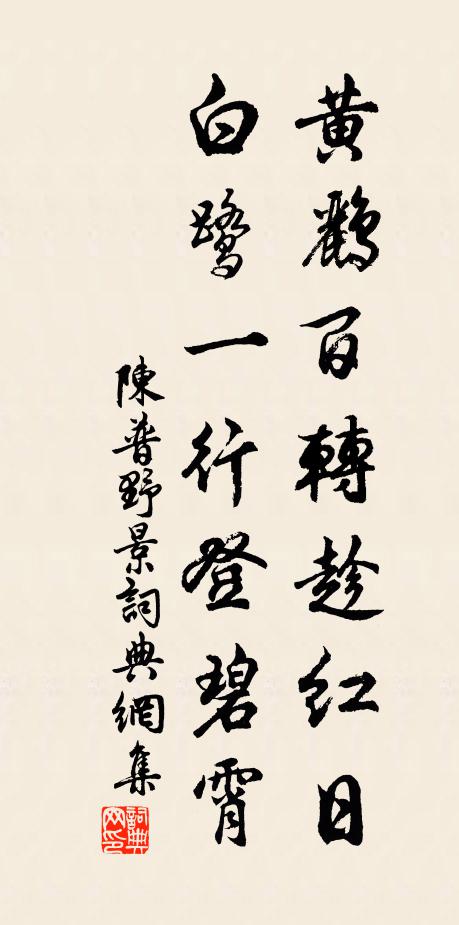 黃鸝百轉趁紅日
白鷺一行登碧霄
陳普野景詞典網集
詞典网印